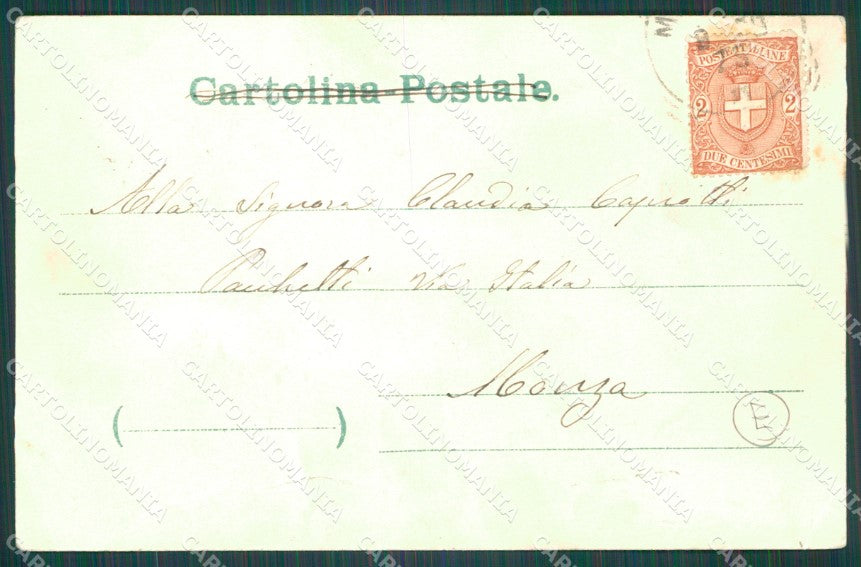 Cartolina Postale.
POSTE ITALIANE
2 2
DUE CENTESIMI
Alla Signora Claudia Caprotti
Via Italia
Monza
( )
CARTOLINOMANIA